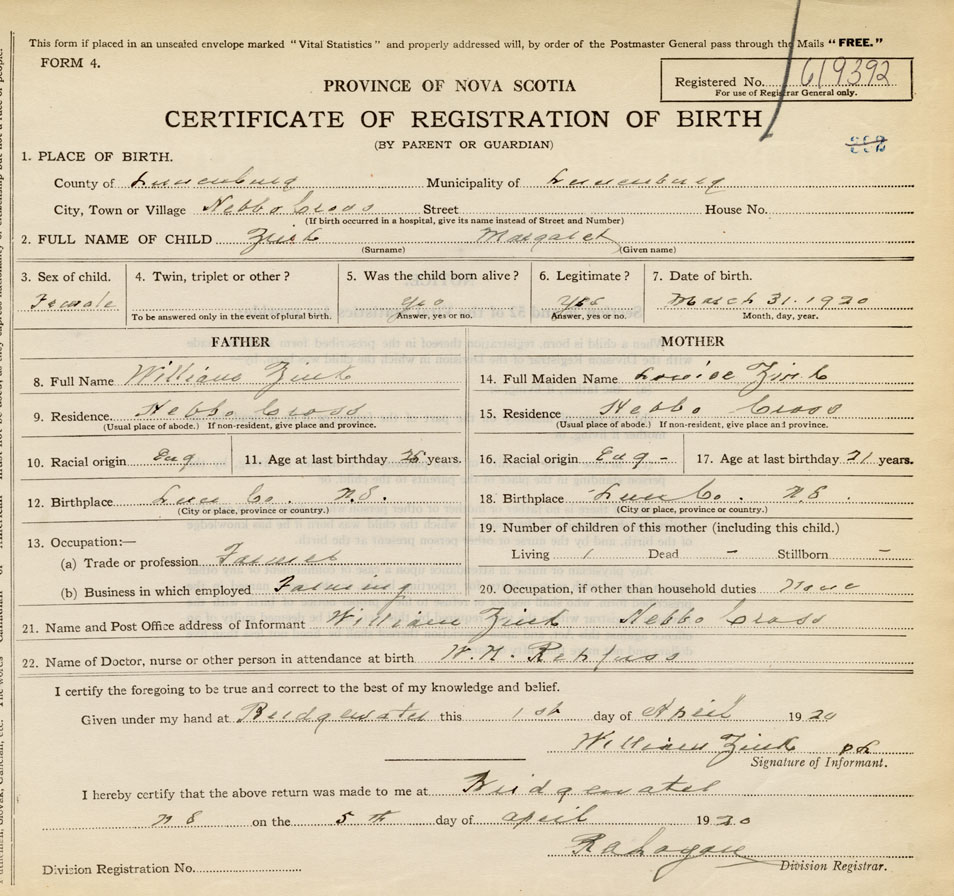 This form if placed in an unsealed envelope marked "Vital Statistics" and properly addressed will, by order of the Postmaster General pass through the Mails "FREE."
FORM 4.
Registered No. 619392
For use of Registrar General only.
PROVINCE OF NOVA SCOTIA
CERTIFICATE OF REGISTRATION OF BIRTH
(BY PARENT OR GUARDIAN)
1. PLACE OF BIRTH.
County of Lunenburg Municipality of Lunenburg
City, Town or Village Hebbs Cross Street House No.
(If birth occurred in a hospital, give its name instead of Street and Number)
2. FULL NAME OF CHILD Zink Margaret
(Surname) (Given name)
3. Sex of child. 4. Twin, triplet or other? 5. Was the child born alive? 6. Legitimate? 7. Date of birth.
Female Yes Yes March 31. 1920
To be answered only in the event of plural birth. Answer, yes or no. Answer, yes or no. Month, day, year.
FATHER MOTHER
8. Full Name William Zink 14. Full Maiden Name Louise Zink
9. Residence. Hebbs Cross 15. Residence Hebbs Cross
(Usual place of abode.) If non-resident, give place and province. (Usual place of abode.) If non-resident, give place and province.
10. Racial origin Eng 11. Age at last birthday years. 16. Racial origin Eng - 17. Age at last birthday 21 years.
12. Birthplace Lun Co. N.S. 18. Birthplace Lun Co. N.S.
(City or place, province or country.) (City or place, province or country.)
19. Number of children of this mother (including this child.)
13. Occupation:—
Living 1 Dead - Stillborn -
(a) Trade or profession Farmer
(b) Business in which employed Farming 20. Occupation, if other than household duties None
21. Name and Post Office address of Informant William Zink Hebbs Cross
22. Name of Doctor, nurse or other person in attendance at birth W. N. Rehfuss
I certify the foregoing to be true and correct to the best of my knowledge and belief.
Given under my hand at Bridgewater this 1st day of April 1920
William Zink
Signature of Informant.
I hereby certify that the above return was made to me at Bridgewater
N S on the 5th day of April 1920
Division Registration No. Division Registrar.